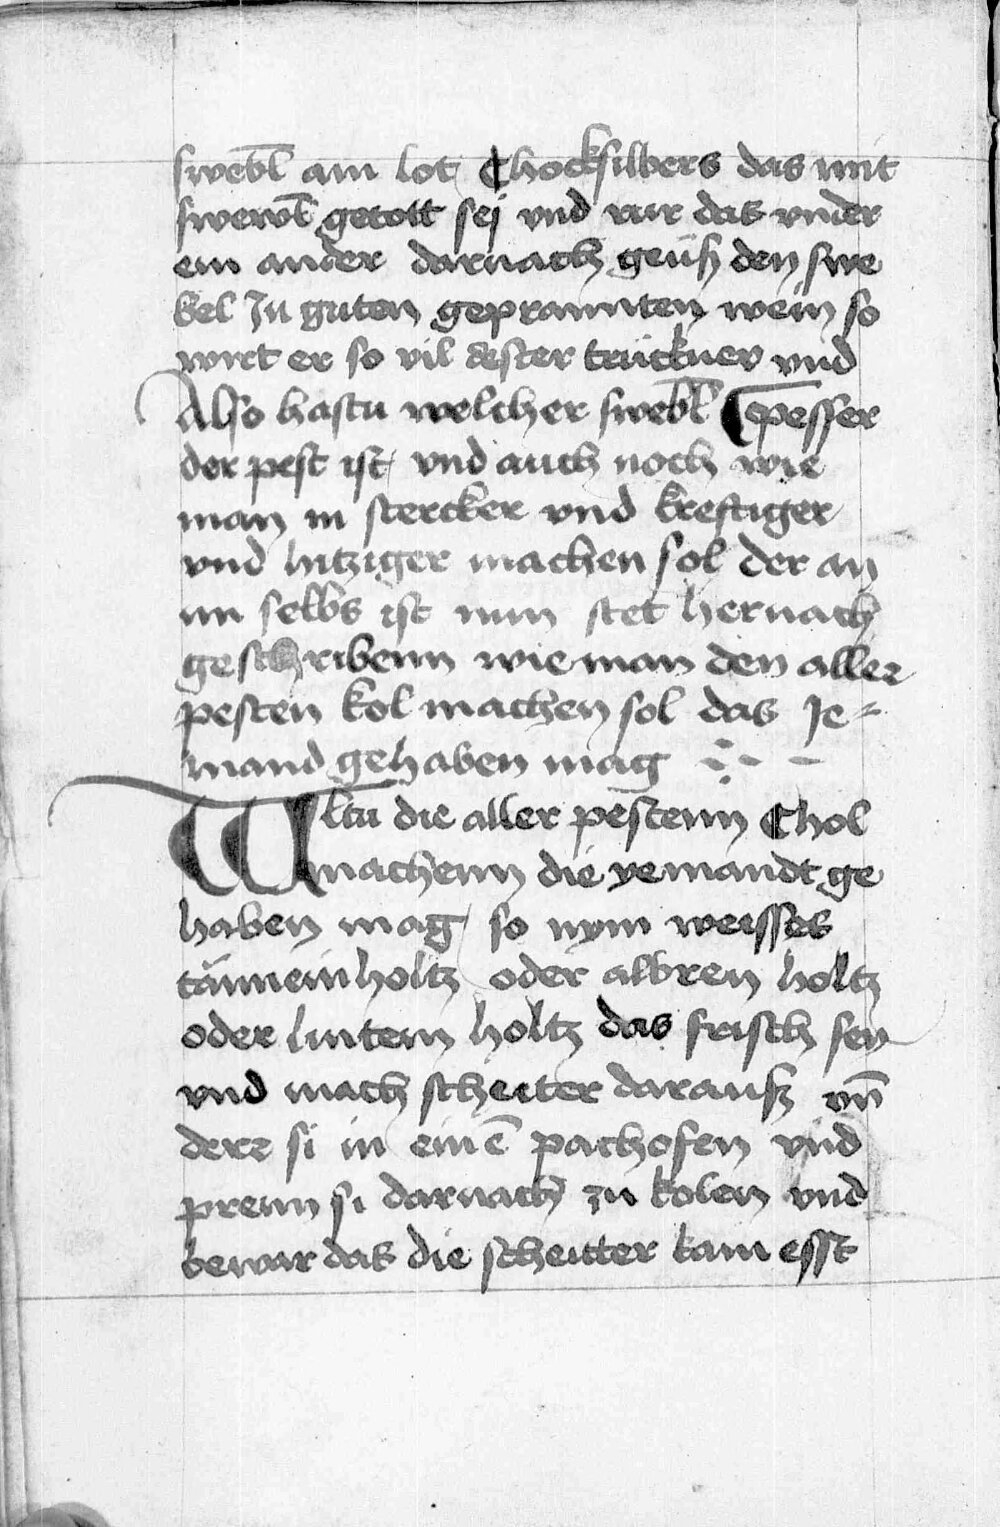 swebl am lot Chocksilbers das mit
swewl getott sej vnd rur das vnder
ein ander darnach geüß den swe
bel In guten gepranntten wein so
wirt er so vil dester trückner vnd
Also hastu welcher swebl pesser
der pest ist vnd auch noch wie
man in stercker vnd kreftiger
vnd hitziger machen sol der an
im selbs ist nun stet hernach
geschribenn wie man den aller
pesten kol machen sol das Je-
mand gehaben mag
Wltu die aller pestenn Chol
machenn die yemandt ge
haben mag so nym weisses
tänneinholtz oder albren holtz
oder lintem holtz das frisch sey
vnd mach scheiter darauß vn̄
derr si in eine͂ pachofen vnd
prenn si darnach zu kolen vnd
bewar das die scheitter kain esst